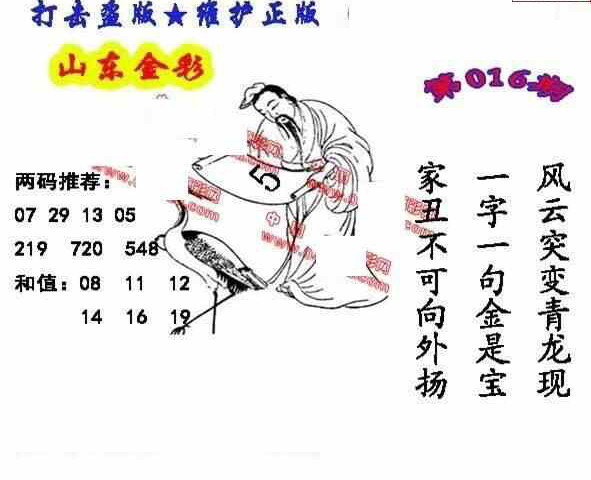 打击盗版★维护正版
山东金彩
第016期
5
两码推荐：
07 29 13 05
219 720 548
和值：08 11 12
14 16 19
风云突变青龙现
一字一句金是宝
家丑不可向外扬